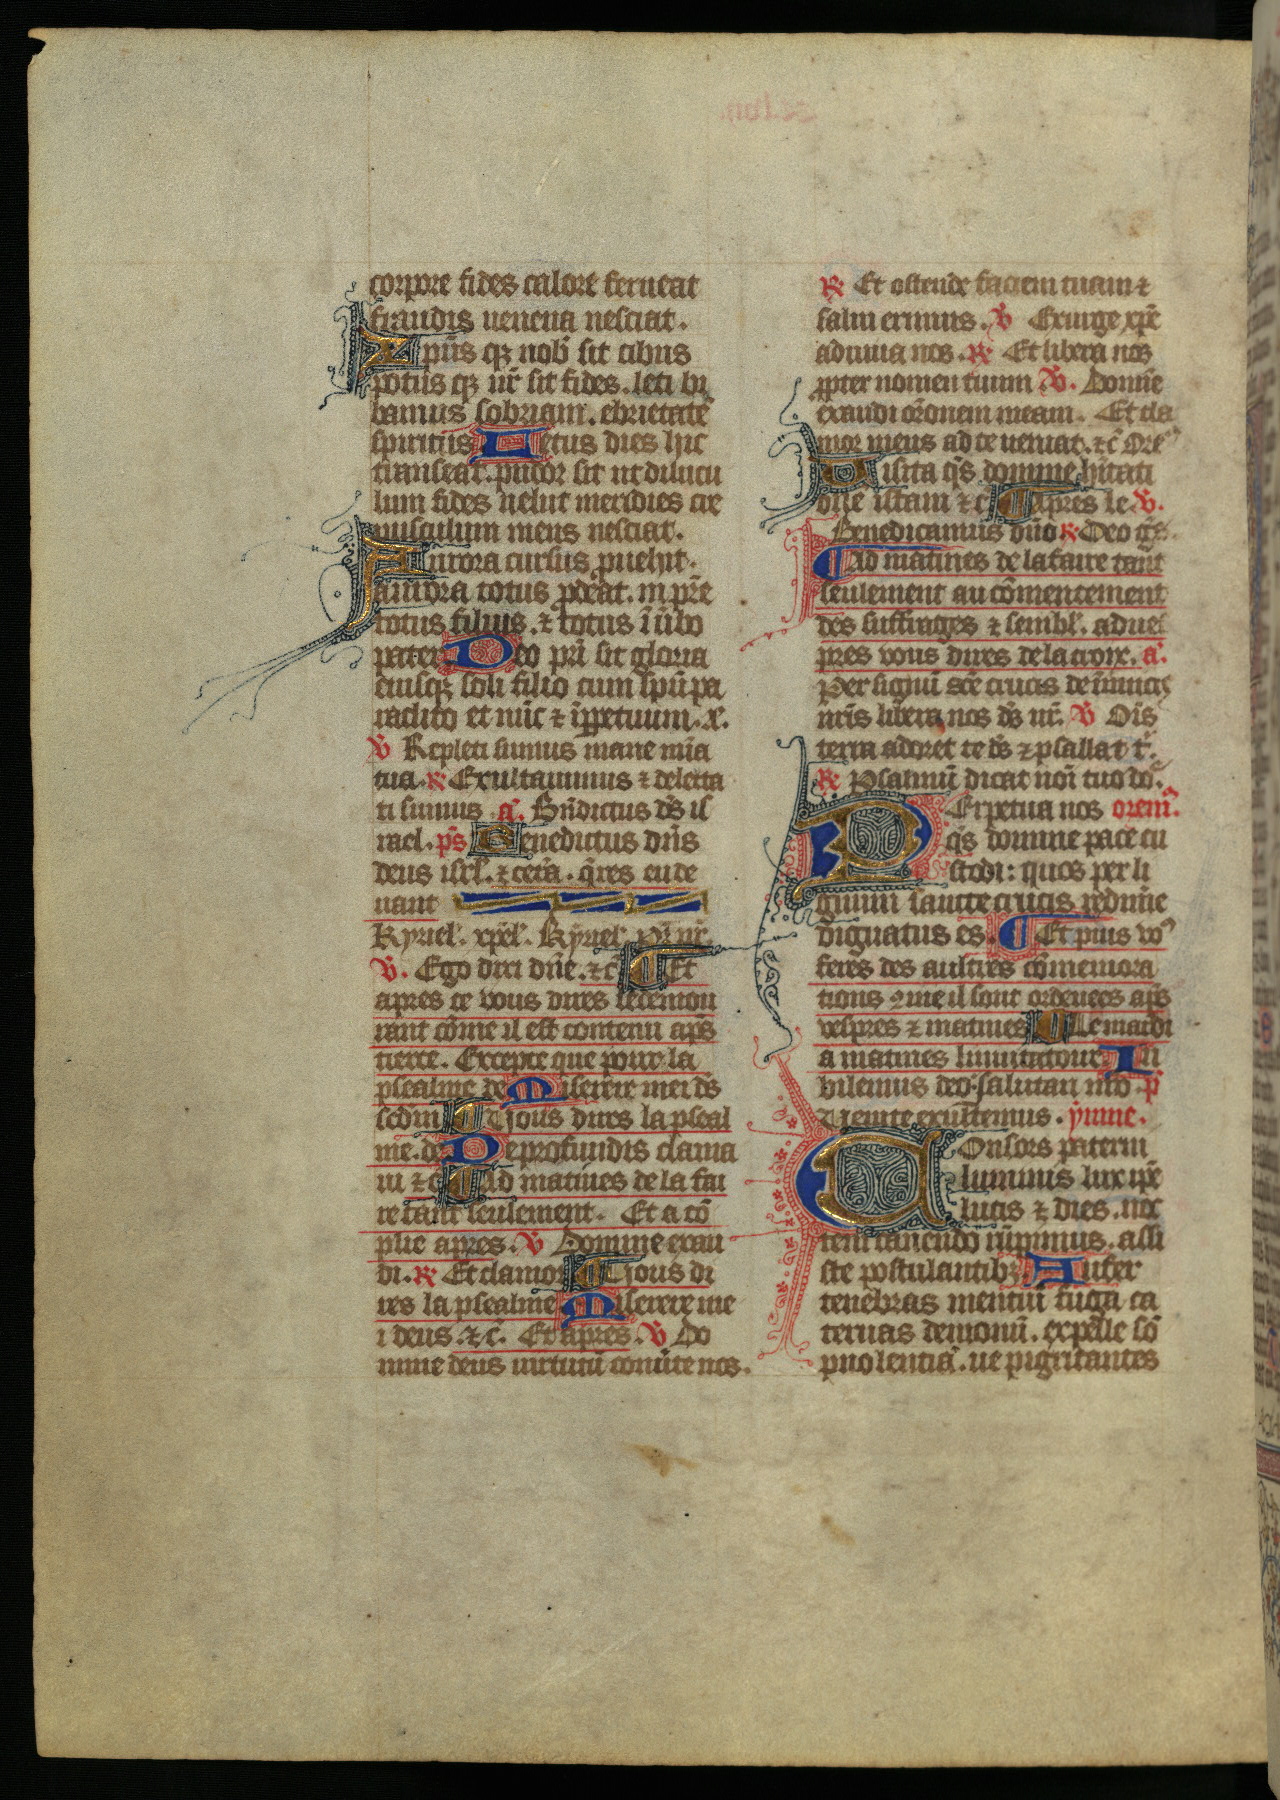 corpore fides calore ferueat
fraudis uenena nesciat.
Xpus qz nob sit cibus
potus qz nr sit fides. leti bi
bamus sobriam. ebrietate
spiritus Letus dies hic
transeat. pudor sit ut dilucu
lum fides uelut meridies cre
pusculum mens nesciat.
Aurora cursus puehit.
aurora totus pdeat. in pre
totus filius. ⁊ totus i ubo
pater Deo pri sit gloria
eiusqz soli filio cum spu pa
raclito et nuc ⁊ i ppetuum. a.
V Repleti sumus mane mia
tua. R Exultauimus ⁊ delecta
ti sumus. a. Bndictus ds is
rael. ps Benedictus dns
deus isrl. ⁊ cera. qres en de
uant
Kyriel. xpel. Kyriel. Pr nr
V. Ego dixi dne. ⁊c Et
apres ce vous dires le demou
rant come il est contenu aps
tierce. Excepte que pour la
psealme de Miserere mei ds
scdm Tjous dires la pseal
me. de De profundis clama
ui ⁊c Ad matines de la fai
re tant seulement. Et a co
plie apres. V Domine exau
di. R Et clamor Tjous di
res la psealme Miserere me
i deus. ⁊c. Et apres. V Do
mine deus uirtutu conuite nos.
R Et ostende faciem tuam ⁊
salui erimus. V Exurge xpe
adiuua nos. R Et libera nos
ppter nomen tuum V. Domie
exaudi oronem meam. Et cla
mor meus ad te ueniat. ⁊c Ore
Uisita qs domine hitati
one istam ⁊c Apres le V.
Benedicamus dno R Deo gs.
Ad matines de la faire tant
seulement au comencement
des suffrages ⁊ sembl. aduel
pres vous dires de la croix. a.
Per signu sce crucis de inimicis
nris libera nos ds nr. V Ois
terra adoret te ds ⁊ psallat t.
R Psalmu dicat noi tuo do.
Perpetua nos orem.
qs domine pace cu
stodi: quos per li
gnum sancte crucis redime
dignatus es. Et puis vo
feres des aultres comemora
tions 9me il sont ordenees aps
vespres ⁊ matines Le mardi
a matines linuitatoire Iu
bilemus deo salutari nro p
Uenite exultemus. ymne.
Consors paterni
luminis lux ipe
lucis ⁊ dies. noc
tem canendo rupimus. assi
ste postulantibz Aufer
tenebras mentiu fuga ca
teruas demonu. expelle so
pnolentia. ne pigritantes